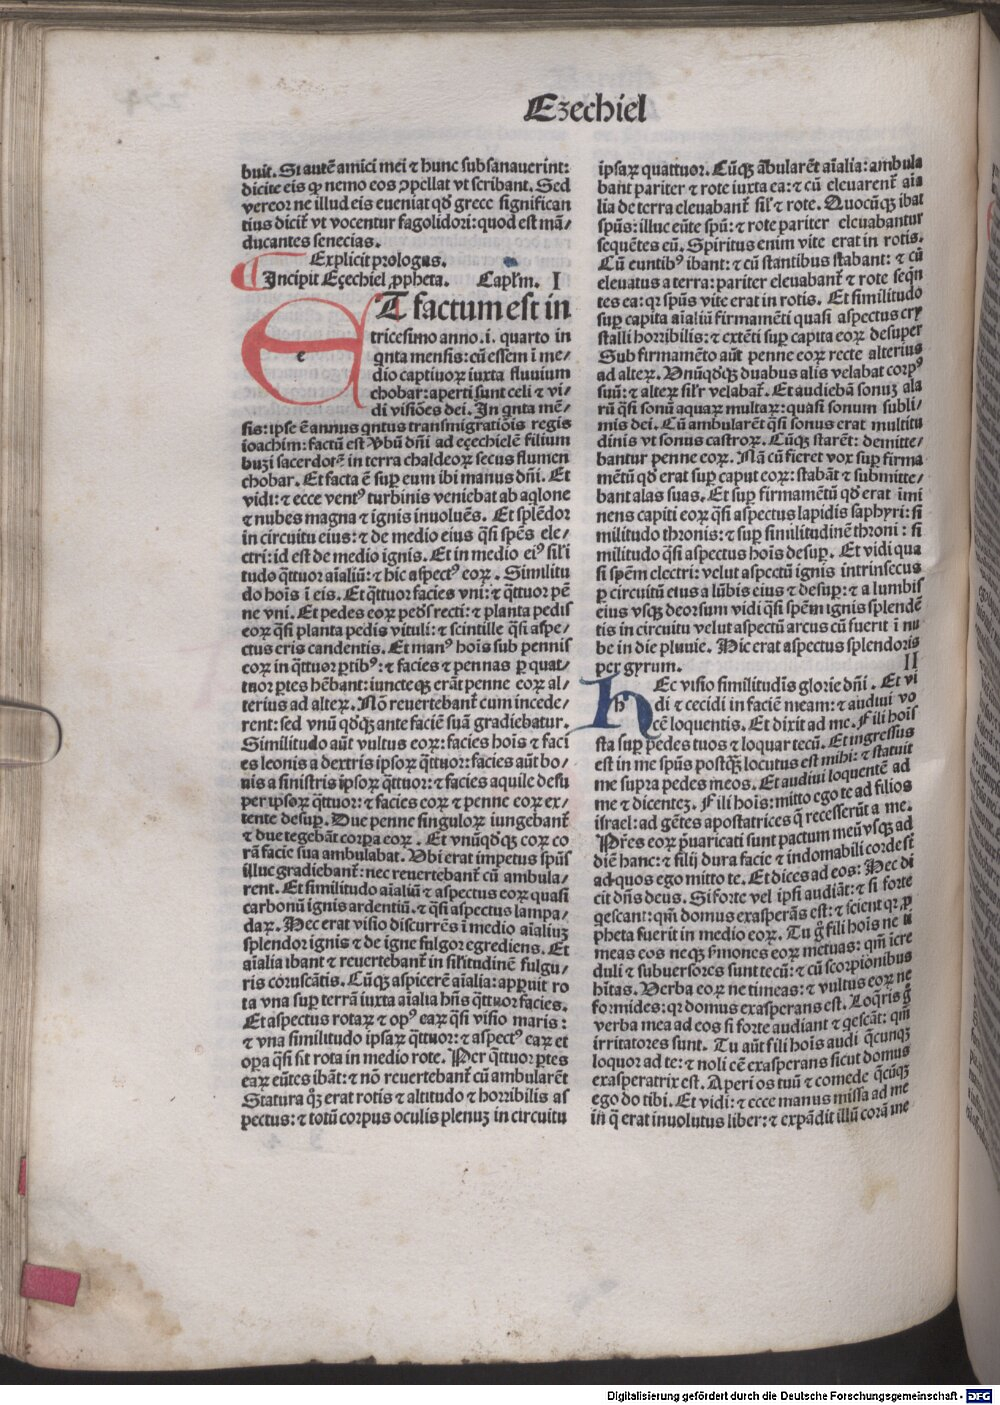 Ezechiel
buit. Si autē amici mei ⁊ hunc subsanauerint:
dicite eis ꝙ nemo eos ꝯpellat vt scribant. Sed
vereor ne illud eis eueniat qd̄ grece significan
tius dicit᷑ vt vocentur fagolidori: quod est mā/
ducantes senecias.
Explicit prologus.
Incipit Eȥechiel ꝓpheta. Capl'm. I
ET factum est in
tricesimo anno .i. quarto in
qnta mensis: cū essem ī me/
dio captiuoꝝ iuxta fluuium
chobar: aperti sunt celi ⁊ vi/
di visiōes dei. In qnta mē/
sis: ipse ē annus qntus transmigratiōis regis
ioachim: factū est v̄bū dñi ad eȥechielē filium
buzi sacerdotē in terra chaldeoꝝ secus flumen
chobar. Et facta ē sup̱ eum ibi manus dñi. Et
vidi: ⁊ ecce ventꝰ turbinis veniebat ab aqlone
⁊ nubes magna ⁊ ignis inuoluēs. Et splēdor
in circuitu eius: ⁊ de medio eius q̄si spēs ele/
ctri: id est de medio ignis. Et in medio eiꝰ sil'i
tudo q̄ttuor aīaliū: ⁊ hic aspectꝰ eoꝝ. Similitu
do hoīs ī eis. Et q̄ttuor facies vni: ⁊ q̄ttuor pē
ne vni. Et pedes eoꝝ pedꝭ recti: ⁊ planta pedis
eoꝝ q̄si planta pedis vituli: ⁊ scintille q̄si aspe/
ctus eris candentis. Et manꝰ hoīs sub pennis
eoꝝ in q̄ttuor p̱tibꝰ: ⁊ facies ⁊ pennas p̱ quat/
tuor p̱tes hēbant: iuncteqꝫ erāt penne eoꝝ al/
terius ad alteꝝ. Nō reuertebant᷑ cum incede/
rent: sed vnū qd̄qꝫ ante faciē suā gradiebatur.
Similitudo aūt vultus eoꝝ: facies hoīs ⁊ faci
es leonis a dextris ipsoꝝ q̄ttuor: facies aūt bo/
uis a sinistris ipsoꝝ q̄ttuor: ⁊ facies aquile desu
per ipsoꝝ q̄ttuor: ⁊ facies eoꝝ ⁊ penne eoꝝ ex/
tente desup̱. Due penne singuloꝝ iungebant᷑
⁊ due tegebāt corp̱a eoꝝ. Et vnūqd̄qꝫ eoꝝ co
rā facie sua ambulabat. Vbi erat impetus spūs
illuc gradiebant᷑: nec reuertebant᷑ cū ambula/
rent. Et similitudo aīaliū ⁊ aspectus eoꝝ quasi
carbonū ignis ardentiū. ⁊ q̄si aspectus lampa/
daꝝ. Hec erat visio discurrēs ī medio aīaliuꝫ
splendor ignis ⁊ de igne fulgor egrediens. Et
aīalia ibant ⁊ reuertebant᷑ in sil'itudinē fulgu/
ris coruscātis. Cūqꝫ aspicerē aīalia: app̱uit ro
ta vna sup̱ terrā iuxta aīalia hn̄s q̄ttuor facies.
Et aspectus rotaꝝ ⁊ opꝰ eaꝝ q̄si visio maris:
⁊ vna similitudo ipsaꝝ q̄ttuor: ⁊ aspectꝰ eaꝝ et
op̱a q̄si sit rota in medio rote. Per q̄ttuor p̱tes
eaꝝ eūtes ibāt: ⁊ nō reuertebant᷑ cū ambularēt
Statura qͦꝫ erat rotis ⁊ altitudo ⁊ horribilis as
pectus: ⁊ totū corpus oculis plenuꝫ in circuitu
ipsaꝝ quattuor. Cūqꝫ ābularēt aīalia: ambula
bant pariter ⁊ rote iuxta ea: ⁊ cū eleuarent᷑ aīa
lia de terra eleuabant᷑ sil' ⁊ rote. Quocūqꝫ ibat
spūs: illuc eūte spū: ⁊ rote pariter eleuabantur
sequētes eū. Spiritus enim vite erat in rotis.
Cū euntibꝰ ibant: ⁊ cū stantibus stabant: ⁊ cū
eleuatus a terra: pariter eleuabant᷑ ⁊ rote seqn̄
tes ea: qꝛ spūs vite erat in rotis. Et similitudo
sup̱ capita aīaliū firmamēti quasi aspectus cry
stalli horribilis: ⁊ extēti sup̱ capita eoꝝ desuper
Sub firmamēto aūt penne eoꝝ recte alterius
ad alteꝝ. Vnūqd̄qꝫ duabus alis velabat corpꝰ
suū: ⁊ alteꝝ sil'r velabat᷑. Et audiebā sonuꝫ ala
rū q̄si sonū aquaꝝ multaꝝ: quasi sonum subli/
mis dei. Cū ambularēt q̄si sonus erat multitu
dinis vt sonus castroꝝ. Cūqꝫ starēt: demitte/
bantur penne eoꝝ. Nā cū fieret vox sup̱ firma
mētū qd̄ erat sup̱ caput eoꝝ: stabāt ⁊ submitte/
bant alas suas. Et sup̱ firmamētū qd̄ erat imi
nens capiti eoꝝ q̄si aspectus lapidis saphyri: si
militudo thronis: ⁊ sup̱ similitudinē throni: si
militudo q̄si aspectus hoīs desup̱. Et vidi qua
si spēm electri: velut aspectū ignis intrinsecus
p̱ circuitū eius a lūbis eius ⁊ desup̱: ⁊ a lumbis
eius vsqꝫ deorsum vidi q̄si spēm ignis splendē
tis in circuitu velut aspectū arcus cū fuerit ī nu
be in die pluuie. Hic erat aspectus splendoris
per gyrum. II
HEc visio similitudīs glorie dñi. Et vi
di ⁊ cecidi in faciē meam: ⁊ audiui vo
cē loquentis. Et dixit ad me. Fili hoīs
sta sup̱ pedes tuos ⁊ loquar tecū. Et ingressus
est in me spūs postq̄ꝫ locutus est mihi: ⁊ statuit
me supra pedes meos. Et audiui loquentē ad
me ⁊ dicenteꝫ. Fili hoīs: mitto ego te ad filios
israel: ad gētes apostatrices q̄ recesserūt a me.
Pr̄es eoꝝ p̄uaricati sunt pactum meū vsqꝫ ad
diē hanc: ⁊ filij dura facie ⁊ indomabili corde st̄
ad quos ego mitto te. Et dices ad eos: Hec di
cit dn̄s deus. Si forte vel ipsi audiāt: ⁊ si forte
qescant: qm̄ domus exasperās est: ⁊ scient qꝛ ꝓ
pheta fuerit in medio eoꝝ. Tu g̊ fili hoīs ne ti
meas eos neqꝫ s'mones eoꝝ metuas: qm̄ īcre
duli ⁊ subuersores sunt tecū: ⁊ cū scorpionibus
hītas. Verba eoꝝ ne timeas: ⁊ vultus eoꝝ ne
formides: qꝛ domus exasperans est. Loq̄ris g̊
verba mea ad eos si forte audiant ⁊ qescāt: qm̄
irritatores sunt. Tu aūt fili hoīs audi q̄cunqꝫ
loquor ad te: ⁊ noli eē exasperans sicut domus
exasperatrix est. Aperi os tuū ⁊ comede q̄cūqꝫ
ego do tibi. Et vidi: ⁊ ecce manus missa ad me
in q̄ erat inuolutus liber: ⁊ expādit illū corā me
Digitalisierung gefördert durch die Deutsche Forschungsgemeinschaft - DFG